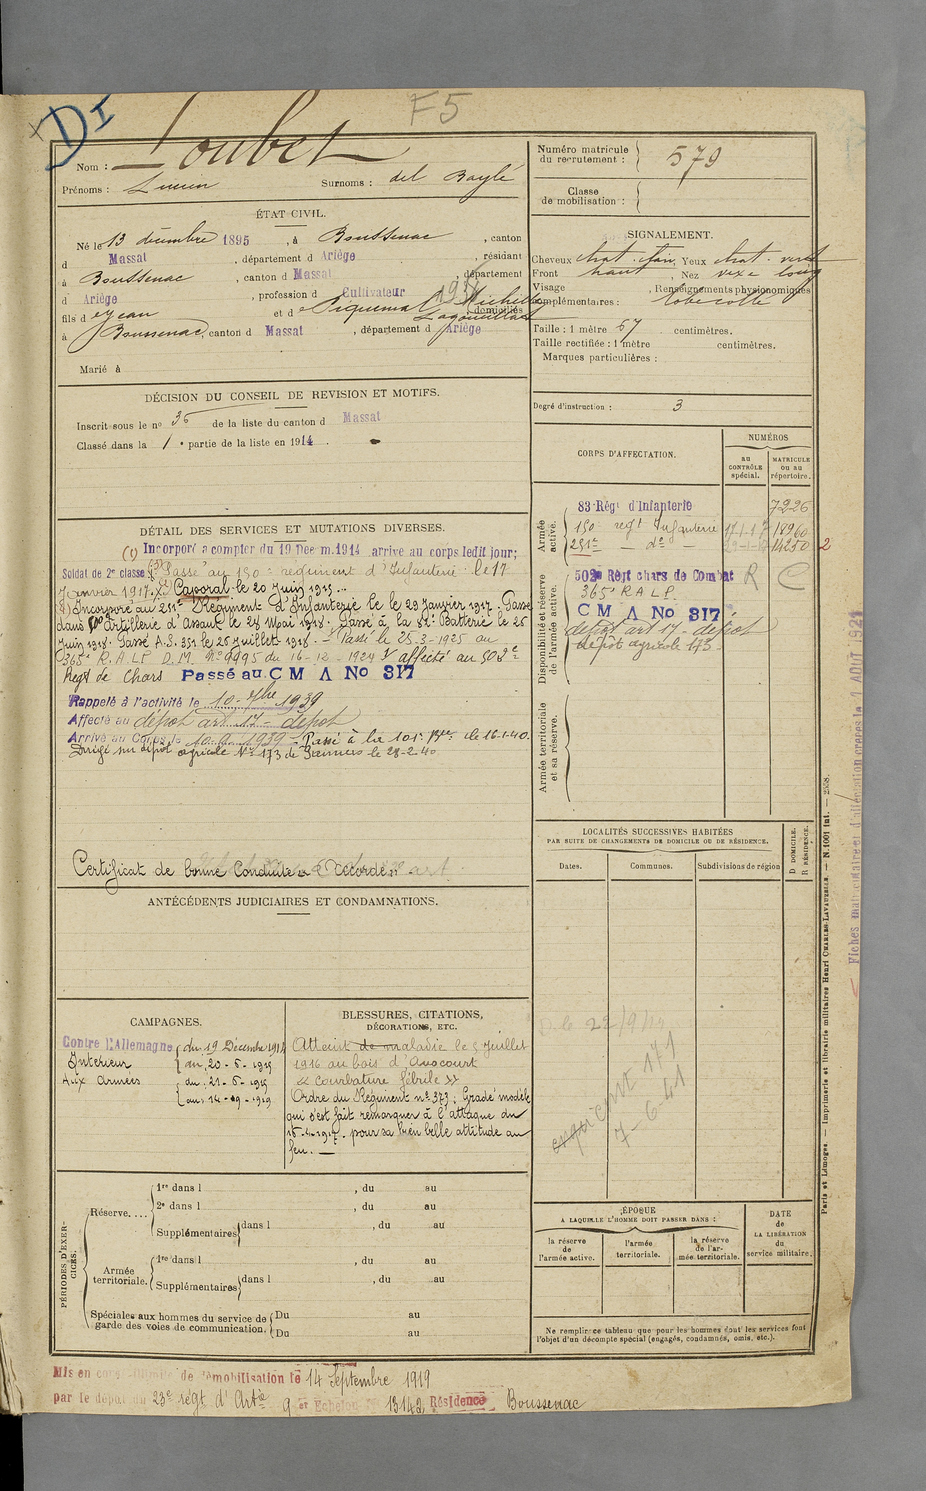 DI
F5
Nom : Loubet
Prénoms : Lucien Surnoms : del Baylé
ÉTAT CIVIL.
Né le 13 décembre 1895, à Boussenac, canton
d Massat, département d Ariège, résidant
à Boussenac, canton d Massat, département
d Ariège, profession d Cultivateur
fils d Jean et d Piquemal domiciliés
à Boussenac, canton d Massat, département d Ariège
Marié à
DÉCISION DU CONSEIL DE REVISION ET MOTIFS.
Inscrit sous le no 36 de la liste du canton d Massat
Classé dans la 1e partie de la liste en 1914.
DÉTAIL DES SERVICES ET MUTATIONS DIVERSES.
(1) Incorporé a compter du 19 Décem.1914 arrive au corps ledit jour;
Soldat de 2e classe Passé au 150e régiment d'Infanterie le 17
Janvier 1917. Caporal le 20 Juin 1915
Incorporé au 251e Régiment d'Infanterie le 29 Janvier 1917. Passé
dans 500e artillerie d'Assaut le 28 Mai 1918. Passé à la 82e Batterie le 26
Juin 1918. Passé A.S. 351 le 26 Juillet 1918. Passé le 25-3-1925 au
365e R.A.L.P. D.M. No 9995 du 16-12-1924 affecté au 502e
Régt de Chars Passé au C M A No 317
Rappelé à l'activité le 10-7bre 1939
Affecté au dépot art 17 - dépot
Arrivé au Corps le 10.9.1939 - Passé à la 101e Bie le 16-1-40.
Dirigé sur dépot agricole No 173 de Pamiers le 28-2-40
Certificat de bonne Conduite Accordé
ANTÉCÉDENTS JUDICIAIRES ET CONDAMNATIONS.
CAMPAGNES.
Contre l'Allemagne du 19 Décembre 1914
Intérieur au 20-6-1915
Aux Armées du 21-6-1915
au 14-09-1919
BLESSURES, CITATIONS,
DÉCORATIONS, ETC.
Atteint de maladie le 5 Juillet
1916 au bois d'Avocourt
« Courbature fébrile »
Ordre du Régiment no 373; Gradé modèle
qui s'est fait remarquer à l'attaque du
16-4-1917. pour sa bien belle attitude au
feu.
PÉRIODES D'EXERCICES.
Réserve....
1re dans l , du au
2e dans l , du au
Supplémentaires dans l , du au
Armée territoriale.
1re dans l , du au
Supplémentaires dans l , du au
Spéciales aux hommes du service de garde des voies de communication.
Du au
Du au
Numéro matricule du recrutement : 579
Classe de mobilisation :
SIGNALEMENT.
Cheveux chat. clair, Yeux chat. verd
Front haut, Nez vexe long
Visage , Renseignements physionomiques
complémentaires : lobe collé
Taille : 1 mètre 67 centimètres.
Taille rectifiée : 1 mètre centimètres.
Marques particulières :
Degré d'instruction : 3
CORPS D'AFFECTATION.
NUMÉROS
au CONTRÔLE spécial.
MATRICULE ou au répertoire.
Armée active.
83 Régt d'Infanterie 7226
150e regt Infanterie 17-1-17 18960
251e — do — 29-1-17 14250 2
Disponibilité et réserve de l'armée active.
502e Régt chars de Combat R C
365e R A L P.
C M A No 317
dépot art 17 - dépot
dépôt agricole 173
Armée territoriale et sa réserve.
LOCALITÉS SUCCESSIVES HABITÉES
PAR SUITE DE CHANGEMENTS DE DOMICILE OU DE RÉSIDENCE.
D DOMICILE.
R RÉSIDENCE.
Dates. Communes. Subdivisions de région
7-6-41
ÉPOQUE
A LAQUELLE L'HOMME DOIT PASSER DANS :
la réserve de l'armée active.
l'armée territoriale.
la réserve de l'armée territoriale.
DATE de LA LIBÉRATION du service militaire.
Ne remplir ce tableau que pour les hommes dont les services font
l'objet d'un décompte spécial (engagés, condamnés, omis, etc.).
Paris et Limoges. — Imprimerie et librairie militaires Henri CHARLES-LAVAUZELLE. — N. 1001 int. — 2558.
Fiches matriculaire et d'affectation créées le 1 AOUT 1921
Mis en congé illimité de démobilisation le 14 Septembre 1919
par le dépôt du 23e régt d'Artie 9 er Echelon No 13142 Résidence Boussenac